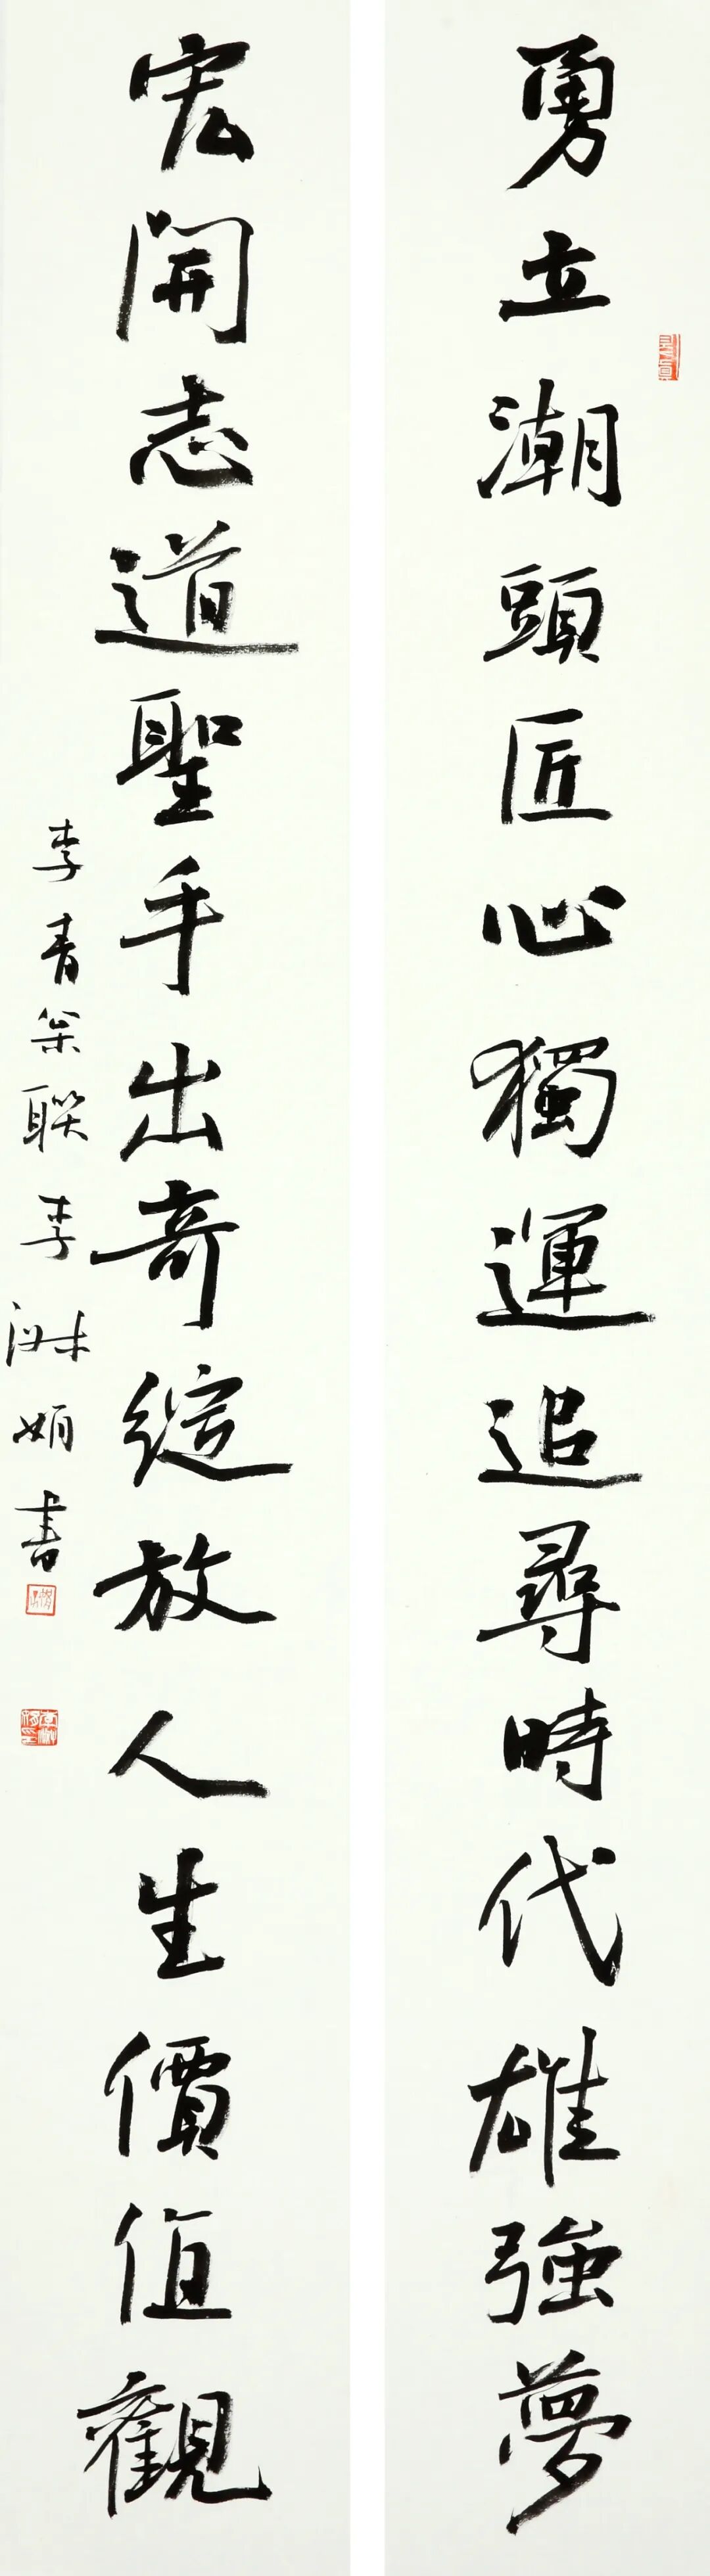 勇立潮頭匠心獨運追尋時代雄強夢
宏開志道聖手出奇綻放人生價值觀
李青葆聯李淑娟書